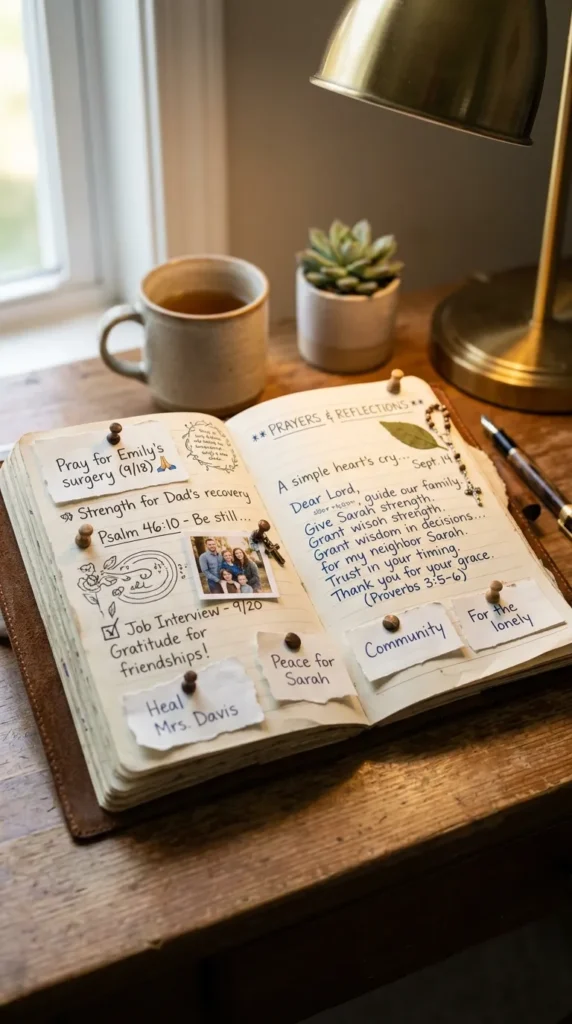 Pray for Emily's
surgery (9/18) 🙏
Strength for Dad's recovery
Psalm 46:10 - Be still...
Job Interview - 9/20
Gratitude for
friendships!
Heal
Mrs. Davis
Peace for
Sarah
PRAYERS & REFLECTIONS
A simple heart's cry...
Sept. 14
Dear Lord,
guide our family.
Give Sarah strength.
Grant wisoh strength.
Grant wisdom in decisions...
for my neighbor Sarah.
Trust in your timing.
Thank you for your grace.
(Proverbs 3:5-6)
Community
For the
lonely